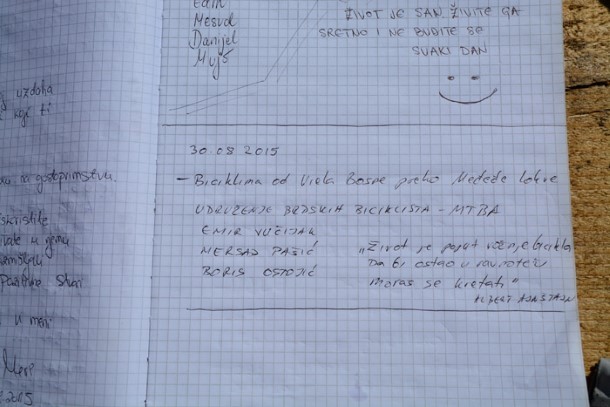 Edin
Mesud
Danijel
Mujo
ŽIVOT JE SAN. ŽIVITE GA
SRETNO I NE BUDITE SE
SVAKI DAN
uzdaha
koji ti
na gostoprimstvu.
iskristite
u njemu
Stvari
u meni
Meri
.2015
30.08 2015
- Biciklima od Vrela Bosne preko Medeđe lokve
UDRUŽENJE BRDSKIH BICIKLISTA - MTBA
EMIR VUČIJAK
MERSAD PAŠIĆ
BORIS OSTOJIĆ
„Život je poput vožnje bicikla
Da bi ostao u ravnoteži
moraš se kretati"
ALBERT AJNŠTAJN